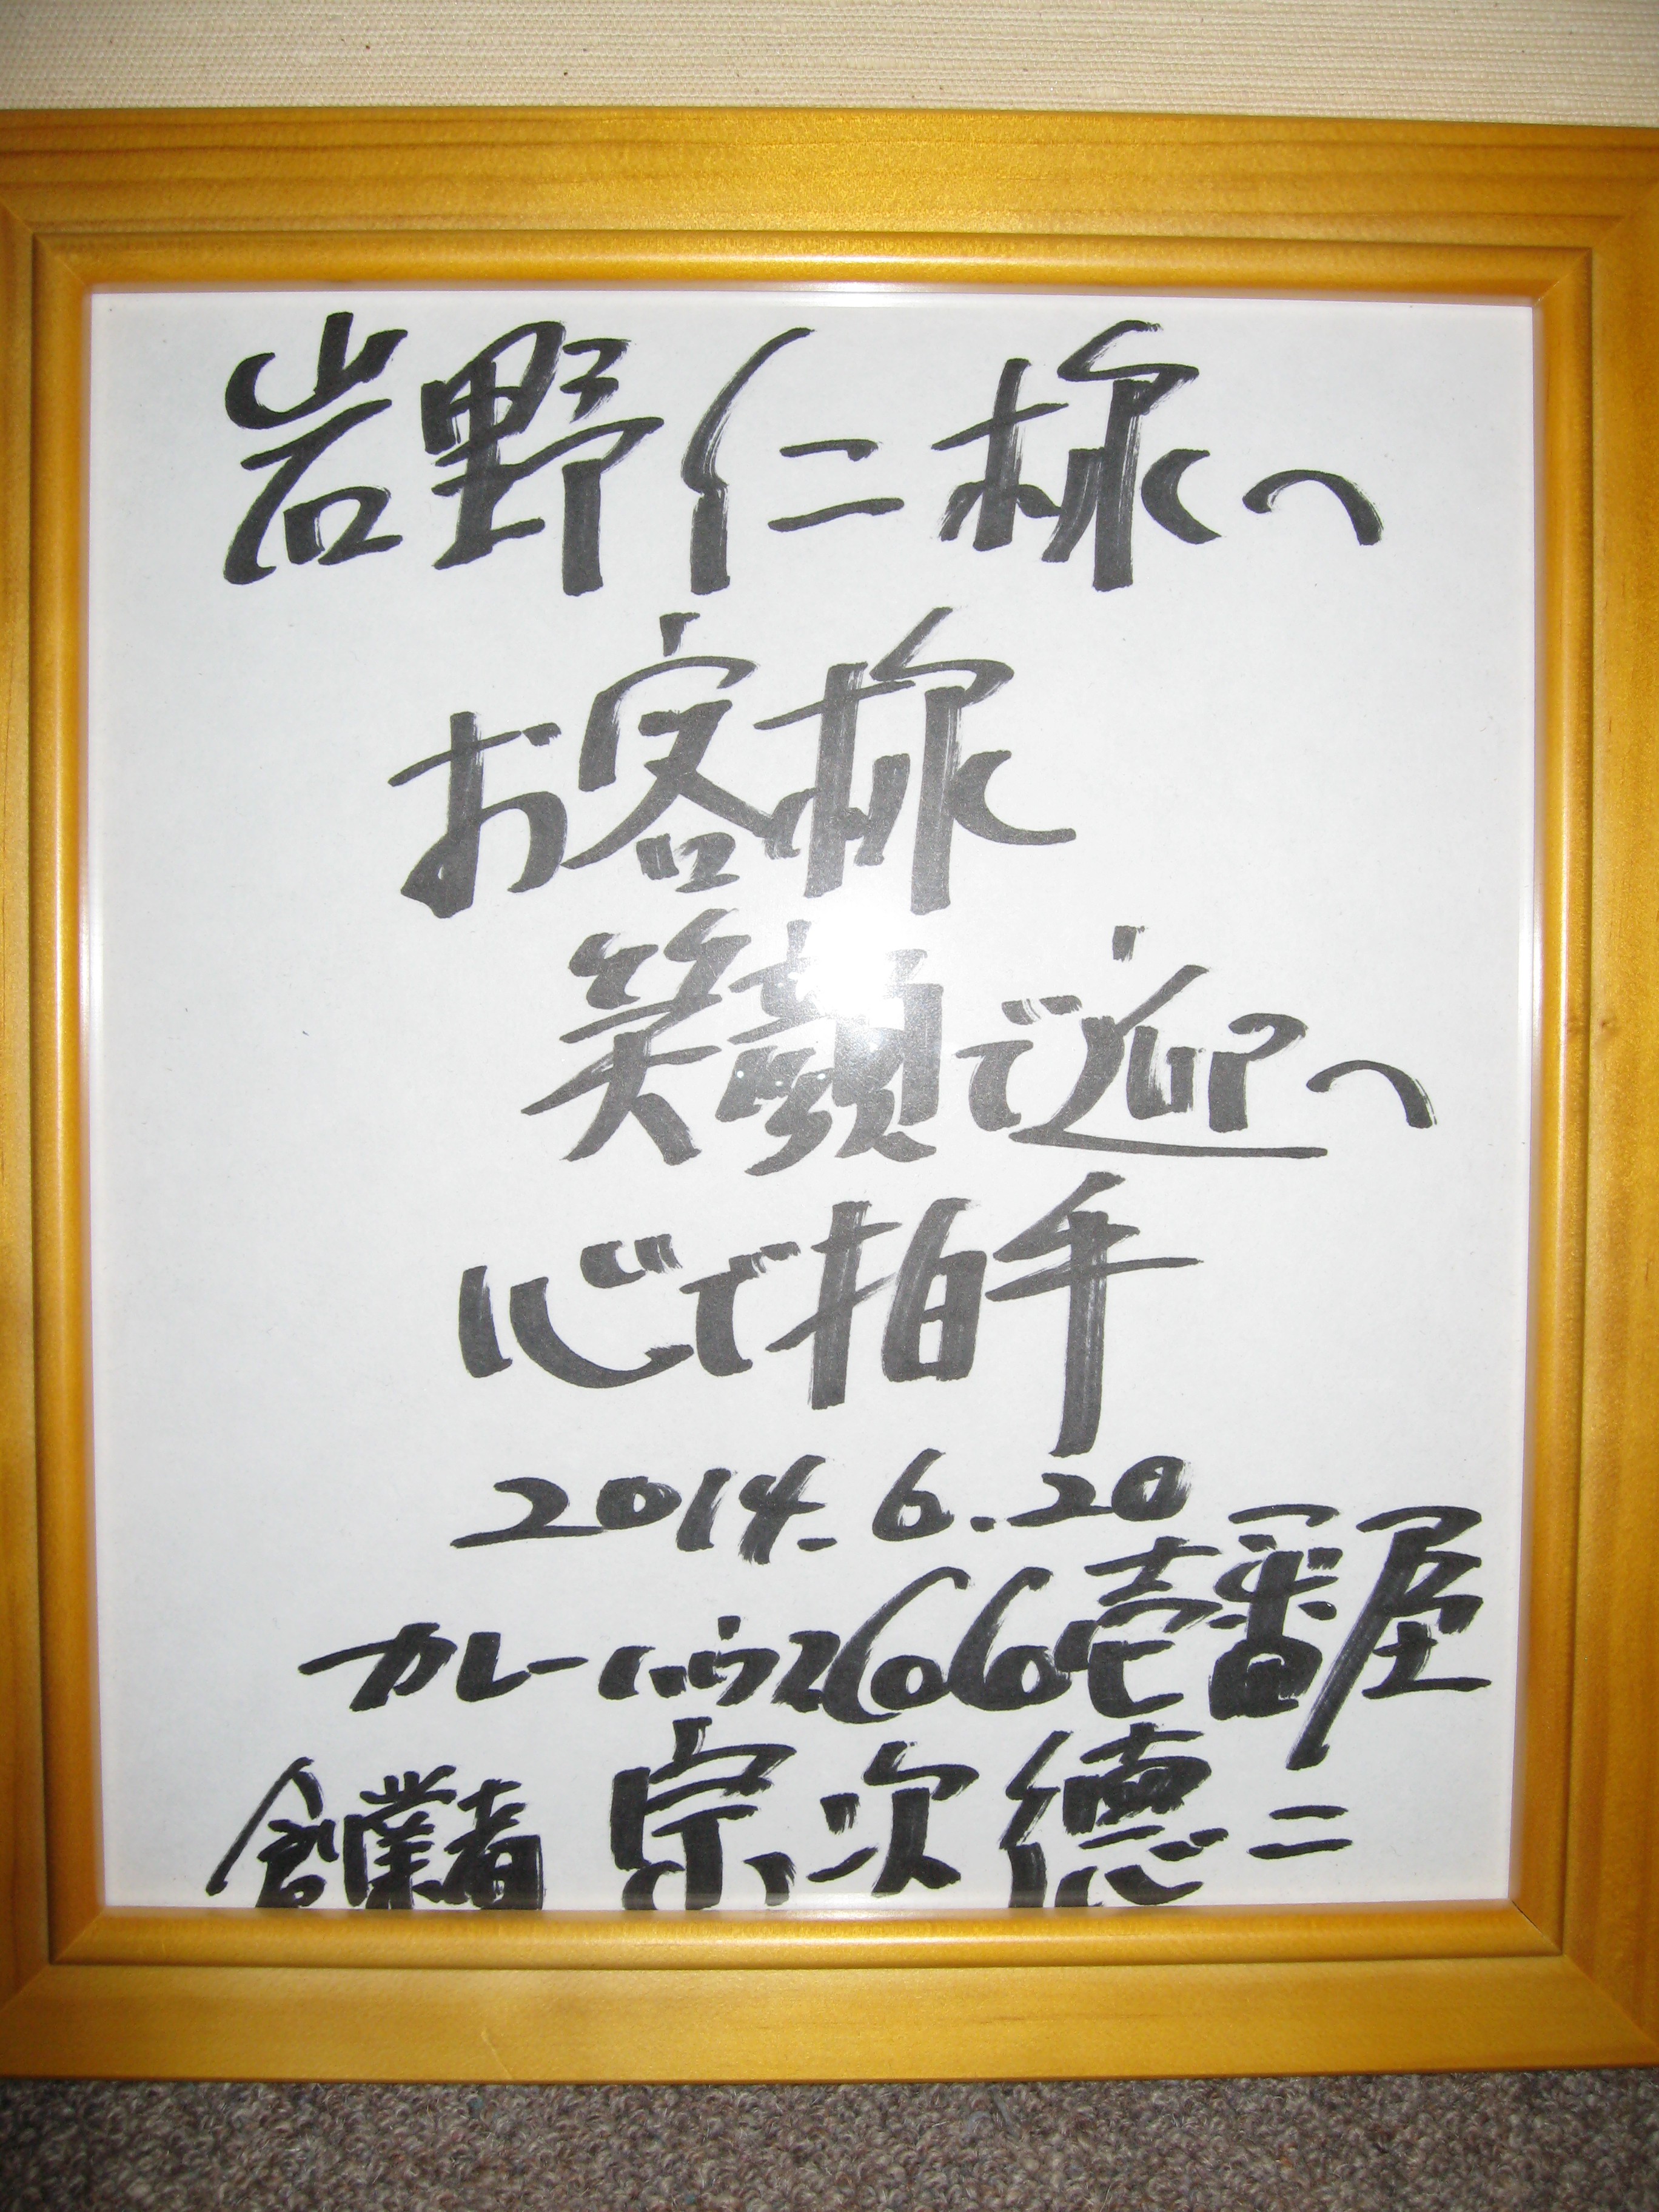 岩野仁様へ
お客様
笑顔で迎へ
心で拍手
2014.6.20
カレーハウスCoCo壱番屋
創業者 宗次徳二